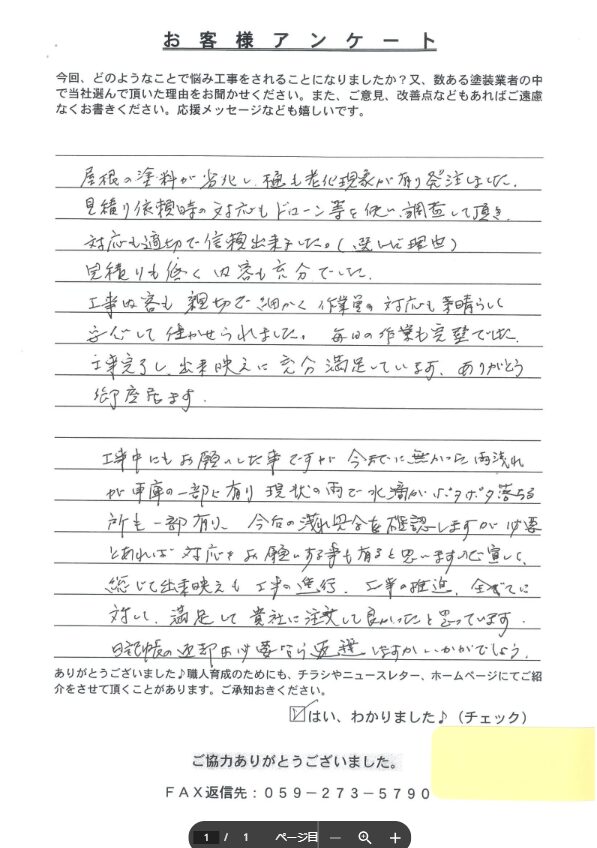 お客様アンケート
今回、どのようなことで悩み工事をされることになりましたか？又、数ある塗装業者の中
で当社選んで頂いた理由をお聞かせください。また、ご意見、改善点などもあればご遠慮
なくお書きください。応援メッセージなども嬉しいです。
屋根の塗料が劣化し、樋も老化現象が有り発注しました。
見積り依頼時の対応もドローン等を使い調査して頂き、
対応も適切で信頼出来ました。(選んだ理由)
見積りも低く内容も充分でした。
工事内容も親切で細かく作業員の対応も素晴らしく
安心して任かせられました。毎日の作業も完璧でした。
工事完了し、出来映えに充分満足しています。ありがとう
御座居ます。
工事中にもお願いした事ですが今までに無かった雨洩れ
が車庫の一部に有り現状の雨で水滴がポタポタ落ちる
所も一部有り、今后の洩れ具合を確認しますが必要
とあれば対応をお願いする事も有ると思いますので宜しく、
総じて出来映えも工事の進行、工事の推進、全てに
対して、満足して貴社に注文して良かったと思っています。
日記帳の返却お必要なら返送しますがいかがでしょう。
ありがとうございました♪職人育成のためにも、チラシやニュースレター、ホームページにてご紹
介をさせて頂くことがあります。ご承知おきください。
はい、わかりました♪（チェック）
ご協力ありがとうございました。
ＦＡＸ返信先：０５９－２７３－５７９０
1 / 1 ページ目